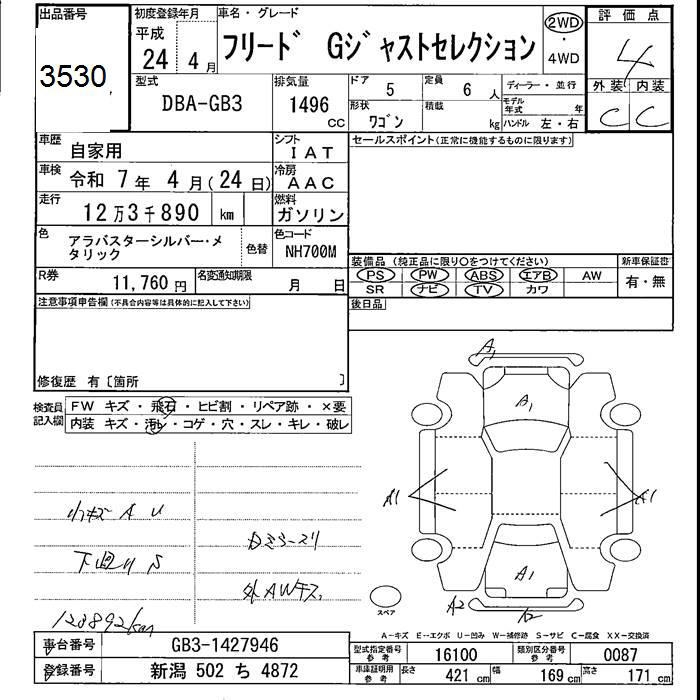 出品番号
3530
初度登録年月
平成
24 4月
車名・グレード
フリード Gジャストセレクション
2WD
・
4WD
評価点
4
外装 内装
C C
型式
DBA-GB3
排気量
1496 CC
ドア 5
定員 6 人
形状 ワゴン
積載 kg
ディーラー・並行
モデル年式 年
ハンドル 左・右
車歴 自家用
シフト IAT
車検 令和 7年 4月(24日)
冷房 AAC
走行 12万3千890 km
燃料 ガソリン
色 アラバスターシルバー・メタリック
色替
色コード NH700M
R券 11,760円
名変通知期限 月 日
セールスポイント(正常に機能するものに限ります)
装備品(純正品に限り○をつけてください)
PS PW ABS エアB AW
SR ナビ TV カワ
新車保証書
有・無
後日品
注意事項申告欄(不具合内容等は具体的に記入して下さい)
修復歴 有〔箇所 〕
検査員記入欄
FW キズ・飛石・ヒビ割・リペア跡・×要
内装 キズ・汚レ・コゲ・穴・スレ・キレ・破レ
小キズ A U
下廻り S
123892km
外AWキズ
A1
A1
A1
A1
A1
A2
スペア
A-キズ E-エクボ U-凹み W-補修跡 S-サビ C-腐食 XX-交換済
車台番号 GB3-1427946
登録番号 新潟 502 ち 4872
型式指定番号 参考 16100
類別区分番号 参考 0087
車庫証明用 参考
長さ 421 cm
幅 169 cm
高さ 171 cm